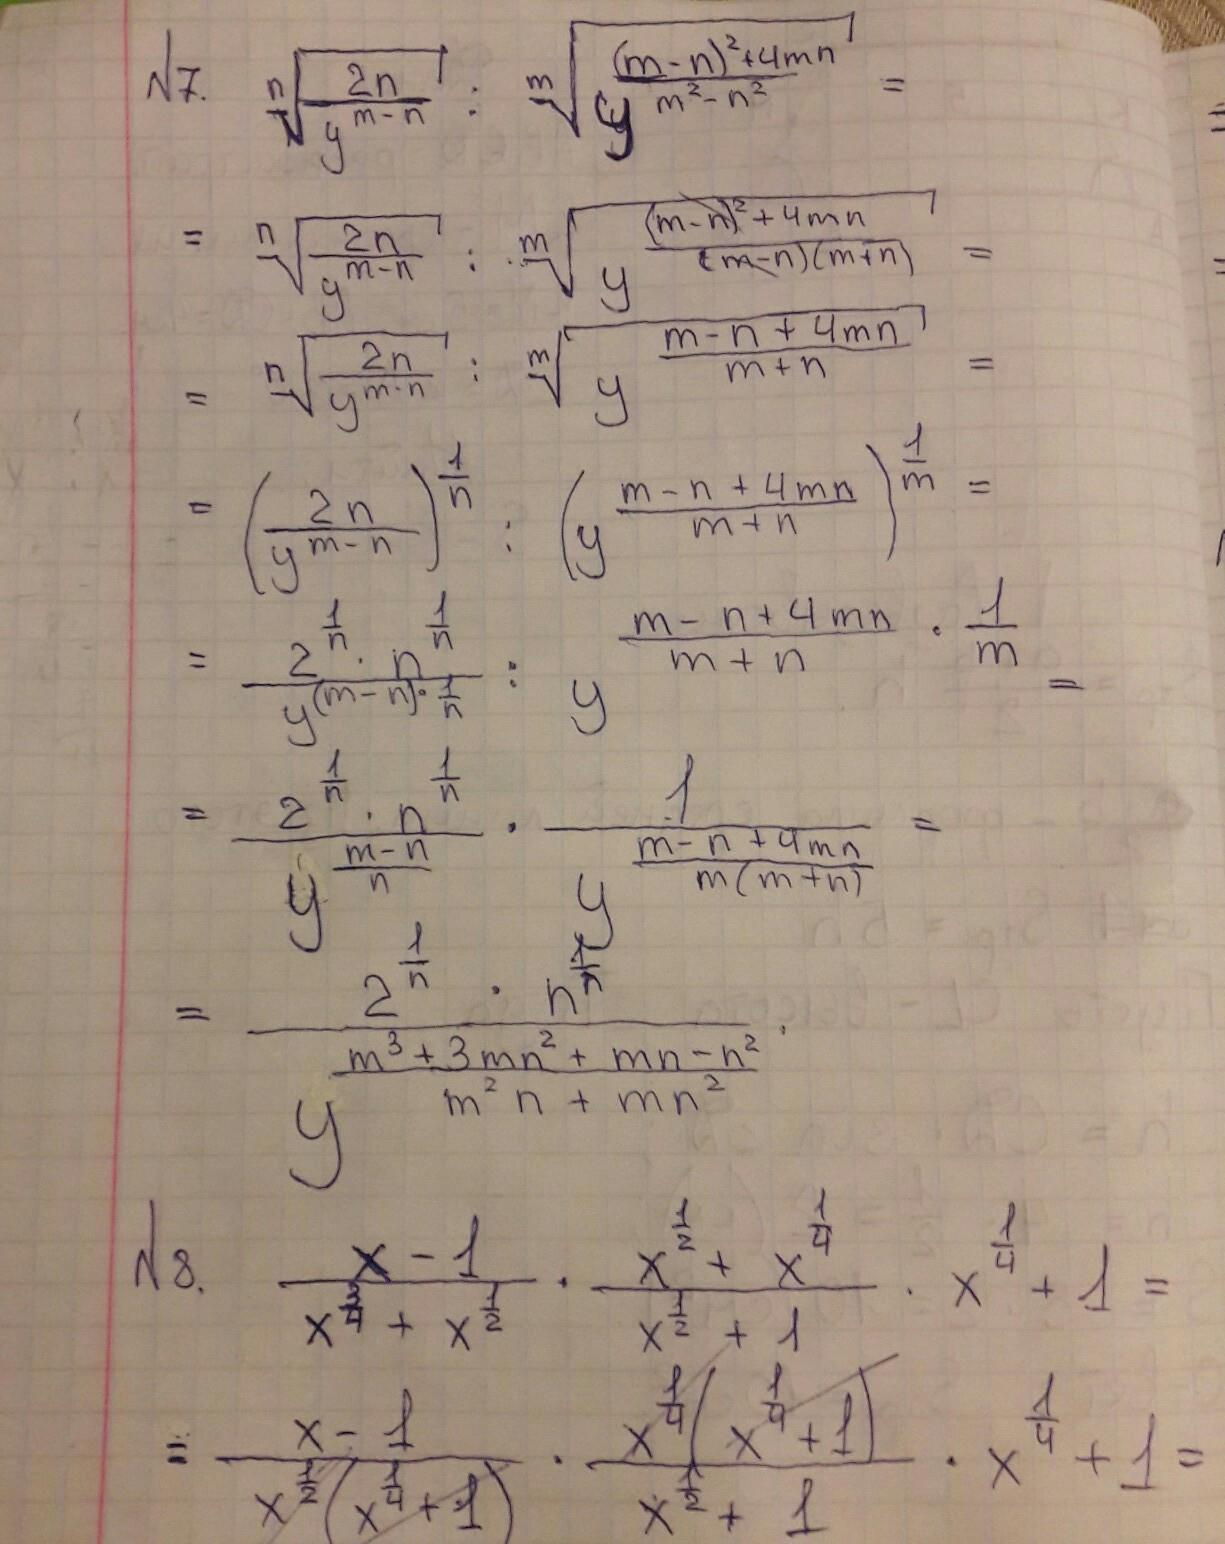 №7. \sqrt[n]{\frac{2n}{y^{m-n}}} : \sqrt[m]{y^{\frac{(m-n)^2+4mn}{m^2-n^2}}} =
= \sqrt[n]{\frac{2n}{y^{m-n}}} : \sqrt[m]{y^{\frac{(m-n)^2+4mn}{(m-n)(m+n)}}} =
= \sqrt[n]{\frac{2n}{y^{m-n}}} : \sqrt[m]{y^{\frac{m-n+4mn}{m+n}}} =
= \left(\frac{2n}{y^{m-n}}\right)^{\frac{1}{n}} : \left(y^{\frac{m-n+4mn}{m+n}}\right)^{\frac{1}{m}} =
= \frac{2^{\frac{1}{n}} \cdot n^{\frac{1}{n}}}{y^{(m-n) \cdot \frac{1}{n}}} : y^{\frac{m-n+4mn}{m+n} \cdot \frac{1}{m}} =
= \frac{2^{\frac{1}{n}} \cdot n^{\frac{1}{n}}}{y^{\frac{m-n}{n}}} \cdot \frac{1}{y^{\frac{m-n+4mn}{m(m+n)}}} =
= \frac{2^{\frac{1}{n}} \cdot n^{\frac{1}{n}}}{y^{\frac{m^3+3mn^2+mn-n^2}{m^2n+mn^2}}}.
№8. \frac{x-1}{x^{\frac{3}{4}}+x^{\frac{1}{2}}} \cdot \frac{x^{\frac{1}{2}}+x^{\frac{1}{4}}}{x^{\frac{1}{2}}+1} \cdot x^{\frac{1}{4}}+1 =
= \frac{x-1}{x^{\frac{1}{2}}(x^{\frac{1}{4}}+1)} \cdot \frac{x^{\frac{1}{4}}(x^{\frac{1}{4}}+1)}{x^{\frac{1}{2}}+1} \cdot x^{\frac{1}{4}}+1 =